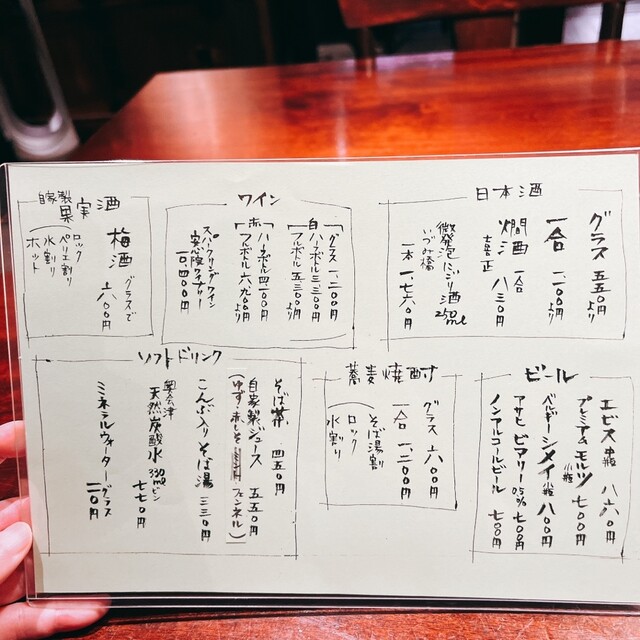 日本酒
グラス 五五〇円より
一合 一、一〇〇円より
燗酒 一合 八三〇円
喜正
微発泡にごり酒 250ml
いづみ橋
一本 一、七六〇円
ワイン
グラス 一、二〇〇円
白 ハーフボトル 三、三〇〇円
フルボトル 五、五〇〇円より
赤 ハーフボトル 四、一〇〇円
フルボトル 六、九〇〇円より
スパークリングワイン
安心院ワイナリー
一〇、四〇〇円
自家製
果実酒
梅酒 グラスで 六八〇〇円
ロック
ペリエ割り
水割り
ホット
ビール
エビス 中瓶 八六〇円
プレミアムモルツ 小瓶 七〇〇円
ベルギーシメイ 小瓶 八〇〇円
アサヒ ビアリー 0.5% 七〇〇円
ノンアルコールビール 七〇〇円
蕎麦焼酎
グラス 六〇〇円
一合 一、二〇〇円
そば湯割り
ロック
水割り
ソフトドリンク
そば茶 四五〇円
自家製ジュース 五五〇円
(ゆず 赤しそ フェンネル)
こんぶ入りそば湯 三三〇円
奥会津
天然炭酸水 330mlビン
七七〇円
ミネラルウォーター グラス
二〇円